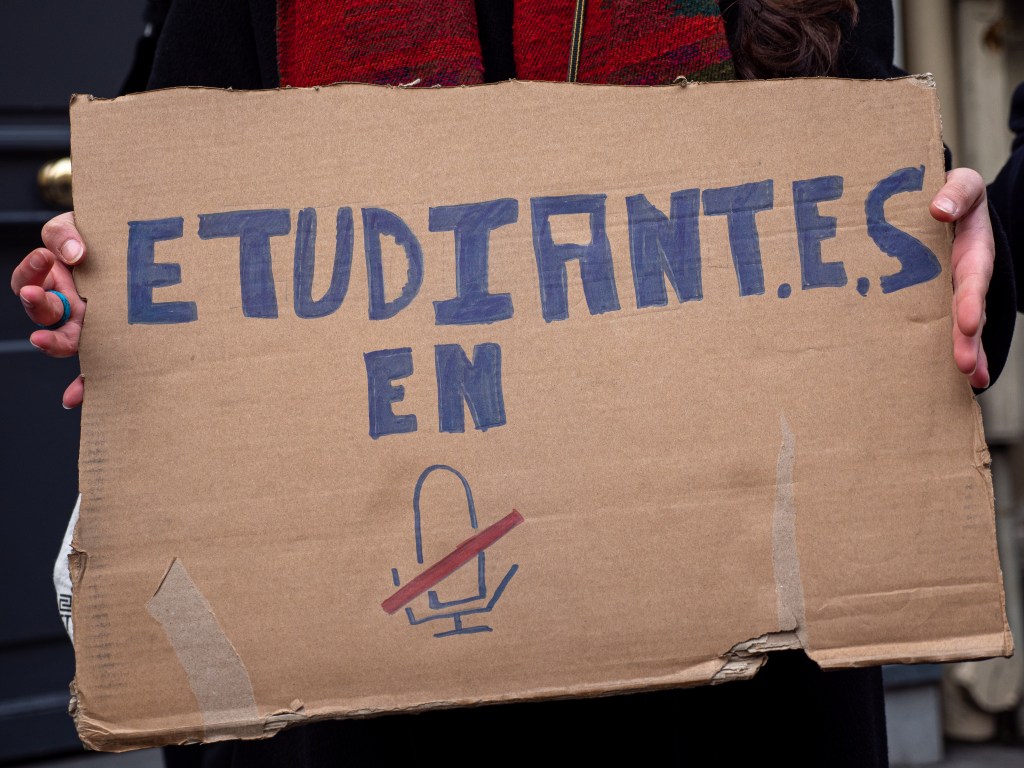 ETUDIANT.E.S
EN